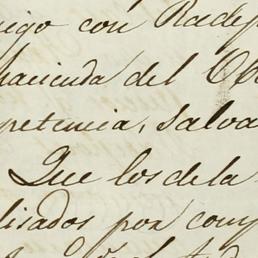 igo con Rade
hacienda del Ob
petencia, salva
Que los de la
lisados por com